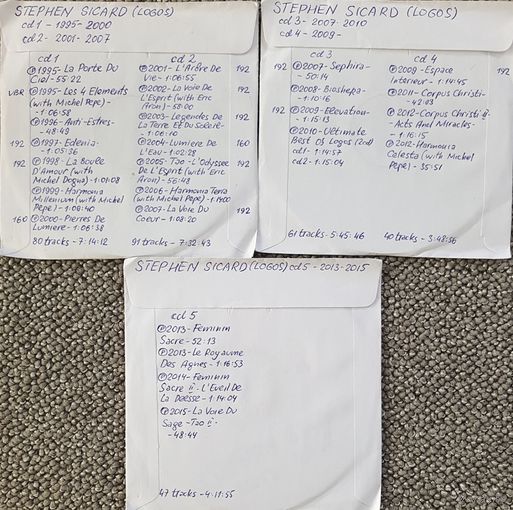 STEPHEN SICARD (LOGOS)
cd 1 - 1995-2000
cd 2 - 2001-2007
cd 1
Ⓟ1995-La Porte Du
Ciel-55:22
VBR Ⓟ1995-Les 4 Elements
(with Michel Pepe)-
-1:06:58
Ⓟ1996-Anti-Estres-
-48:49
192 Ⓟ1997-Edenia-
-1:05:36
192 Ⓟ1998-La Boule
D'Amour (with
Michel Dogna)-1:01:08
Ⓟ1999-Harmonia
Millenium (with Michel
Pepe)-1:08:40
160 Ⓟ2000-Pierres De
Lumiere-1:06:38
80 tracks-7:14:12
cd 2
Ⓟ2001-L'Arbre De 192
Vie-1:06:55
Ⓟ2002-La Voie De 192
L'Esprit (with Eric
Aron)-58:00
Ⓟ2003-Legendes De 192
La Terre Et Du Soleil-
-1:06:10
Ⓟ2004-Lumiere De 160
L'Eau-1:02:28
Ⓟ2005-Tao-L'Odyssee 192
De L'Esprit (with Eric
Aron)-56:48
Ⓟ2006-Harmonia Terra
(with Michel Pepe)-1:14:00
Ⓟ2007-La Voie Du 192
Coeur-1:08:20
91 tracks-7:32:43
STEPHEN SICARD (LOGOS)
cd 3-2007-2010
cd 4-2009-
cd 3
192 Ⓟ2007-Sephira-
-50:14
Ⓟ2008-Bioshepa-
-1:10:16
192 Ⓟ2009-Elevation-
-1:15:13
Ⓟ2010-Ultimate
Best Of Logos (2cd)
cd1-1:14:57
cd2-1:15:04
61 tracks-5:45:46
cd 4
Ⓟ2009-Espace 192
Interieur-1:14:45
Ⓟ2011-Corpus Christi-
-42:03
Ⓟ2012-Corpus Christi II-
-Acts And Miracles-
-1:16:15
Ⓟ2012-Harmonia
Celesta (with Michel
Pepe)-35:51
40 tracks-3:48:56
STEPHEN SICARD (LOGOS) cd 5-2013-2015
cd 5
Ⓟ2013-Feminin
Sacre-52:13
Ⓟ2013-Le Royaume
Des Agnes-1:16:53
Ⓟ2014-Feminin
Sacre II-L'Eveil De
La Deesse-1:14:04
Ⓟ2015-La Voie Du
Sage-Tao II-
-48:44
47 tracks-4:11:55